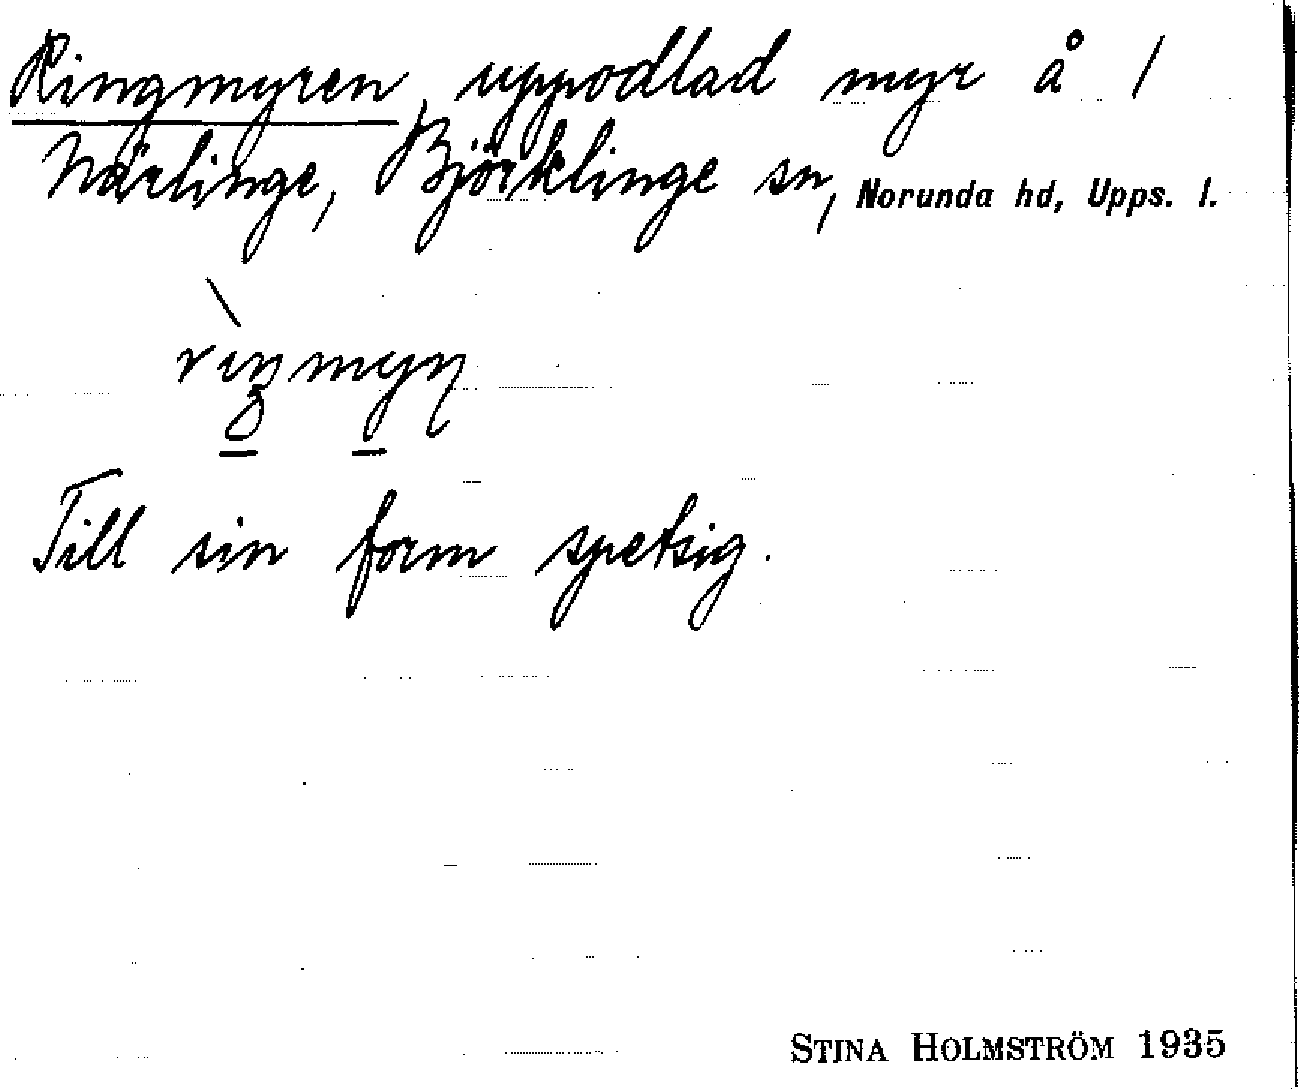 Ringmyren, uppodlad myr å /
Närlinge, Björklinge sn, Norunda hd, Upps. l.
rìŋmyṇ
Till sin form spetsig.
STINA HOLMSTRÖM 1935